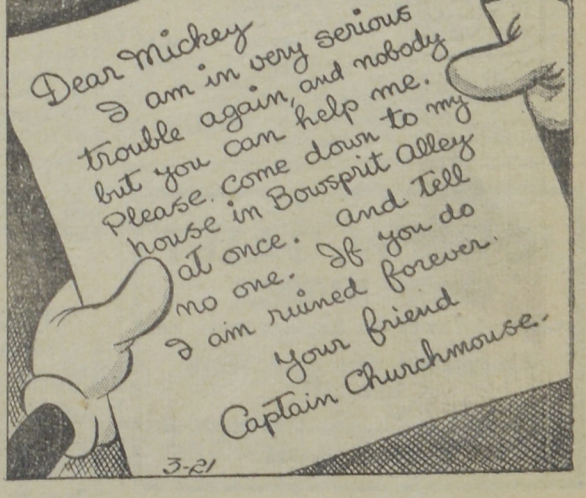 Dear Mickey
I am in very serious
trouble again, and nobody
but you can help me.
Please. Come down to my
house in Bowsprit Alley
at once. and tell
no one. If you do
I am ruined forever.
Your friend
Captain Churchmouse.
3-21